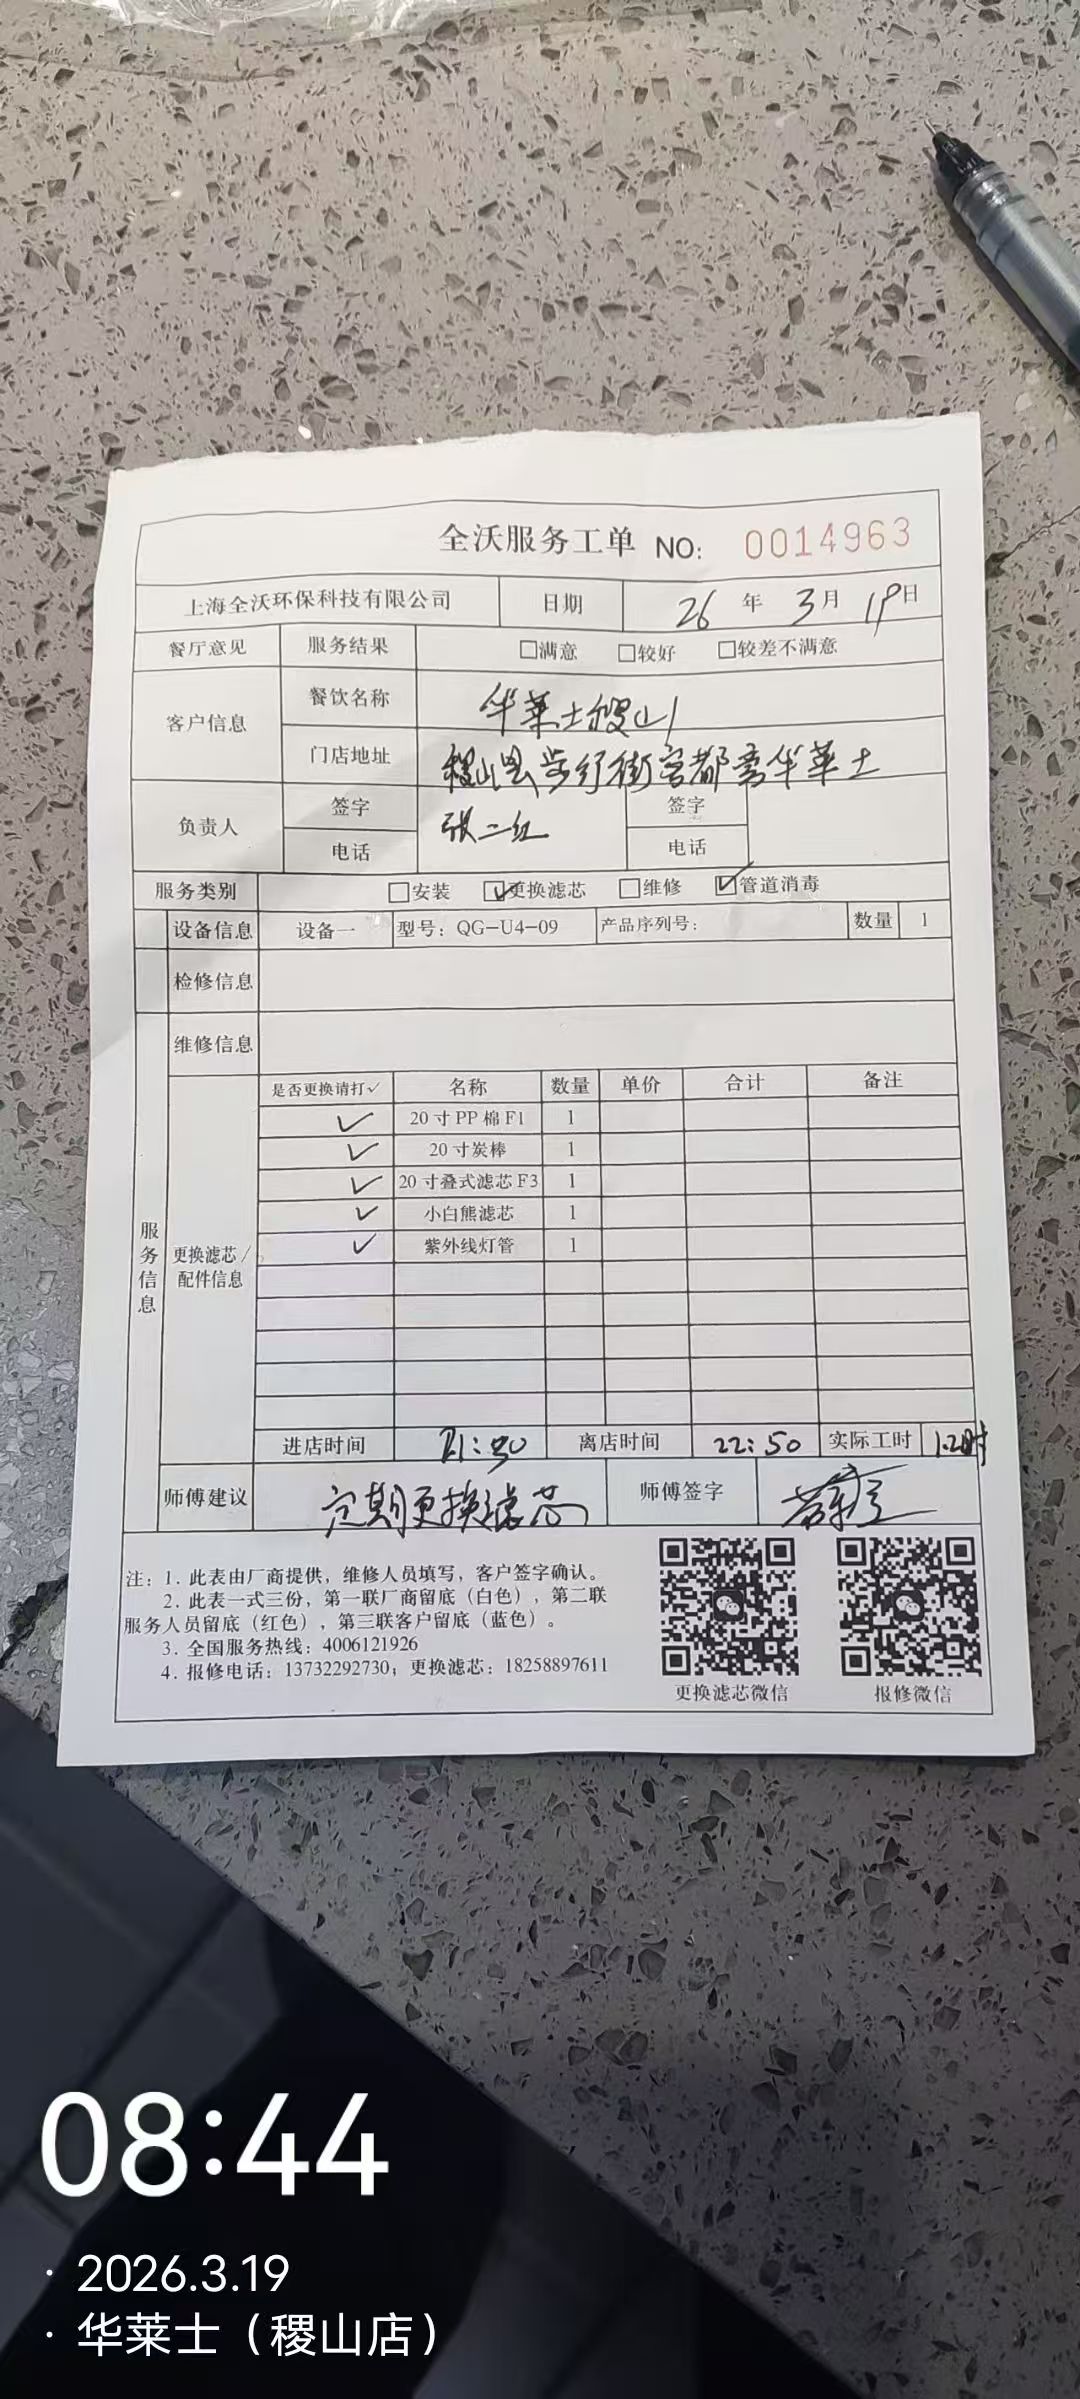 全沃服务工单 NO: 0014963
上海全沃环保科技有限公司 日期 26 年 3 月 19 日
餐厅意见 服务结果 □满意 □较好 □较差不满意
客户信息 餐饮名称 华莱士稷山
门店地址 稷山县步行街 都 华莱士
负责人 签字 张二红 签字
电话 电话
服务类别 □安装 ☑更换滤芯 □维修 ☑管道消毒
设备信息 设备一 型号：QG-U4-09 产品序列号： 数量 1
检修信息
维修信息
服务信息
更换滤芯/配件信息
是否更换请打✓ 名称 数量 单价 合计 备注
✓ 20寸PP棉F1 1
✓ 20寸炭棒 1
✓ 20寸叠式滤芯F3 1
✓ 小白熊滤芯 1
✓ 紫外线灯管 1
进店时间 离店时间 22:50 实际工时
师傅建议 定期更换滤芯 师傅签字
注：1. 此表由厂商提供，维修人员填写，客户签字确认。
2. 此表一式三份，第一联厂商留底（白色），第二联
服务人员留底（红色），第三联客户留底（蓝色）。
3. 全国服务热线：4006121926
4. 报修电话：13732292730；更换滤芯：18258897611
更换滤芯微信 报修微信
08:44
· 2026.3.19
· 华莱士（稷山店）